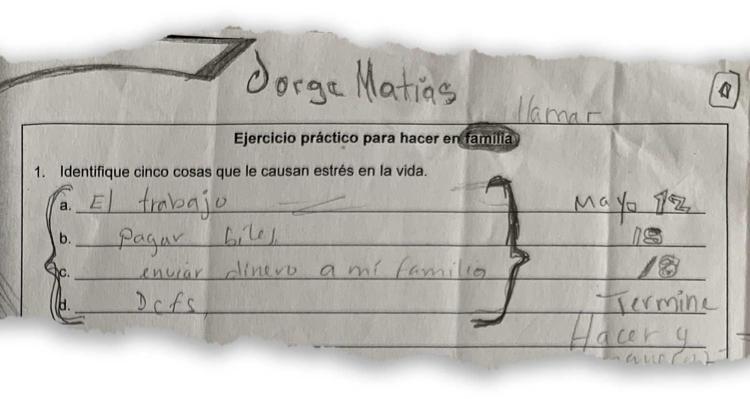 Jorge Matias
llamar
Ejercicio práctico para hacer en familia
1. Identifique cinco cosas que le causan estrés en la vida.
a. El trabajo Mayo 12
b. Pagar biles 15
c. enviar dinero a mi familia 18
d. Dcfs Termine
Hacer y